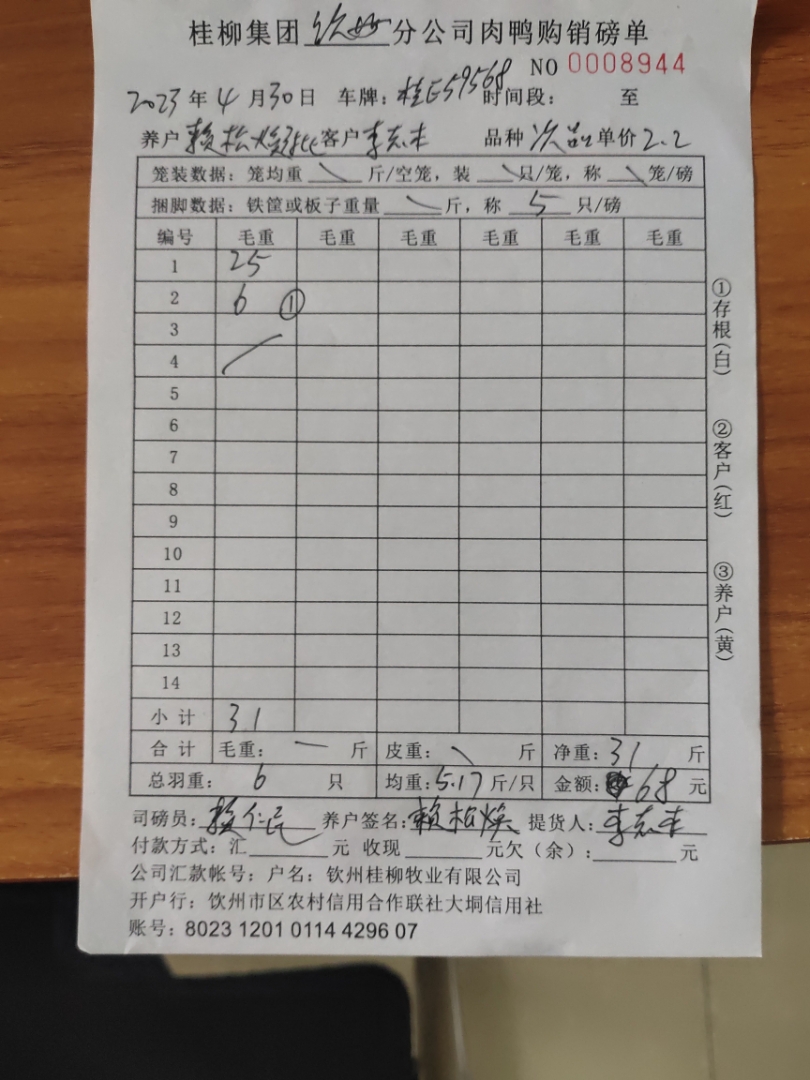 桂柳集团钦州分公司肉鸭购销磅单
NO 0008944
2023年4月30日 车牌：桂E59568 时间段： 至
养户 赖松焕 客户 李志丰 品种 次品 单价 2.2
笼装数据：笼均重 \ 斤/空笼，装 \ 只/笼，称 \ 笼/磅
捆脚数据：铁筐或板子重量 \ 斤，称 5 只/磅
编号 毛重 毛重 毛重 毛重 毛重 毛重
1 25
2 6 ①
3
4
5
6
7
8
9
10
11
12
13
14
小计 31
合计 毛重： — 斤 皮重： \ 斤 净重：31 斤
总羽重： 6 只 均重：5.17 斤/只 金额：68 元
司磅员：赖仁民 养户签名：赖松焕 提货人：李志丰
付款方式：汇 元 收现 元欠（余）： 元
公司汇款帐号：户名：钦州桂柳牧业有限公司
开户行：钦州市区农村信用合作联社大垌信用社
账号：8023 1201 0114 4296 07
①存根（白）
②客户（红）
③养户（黄）